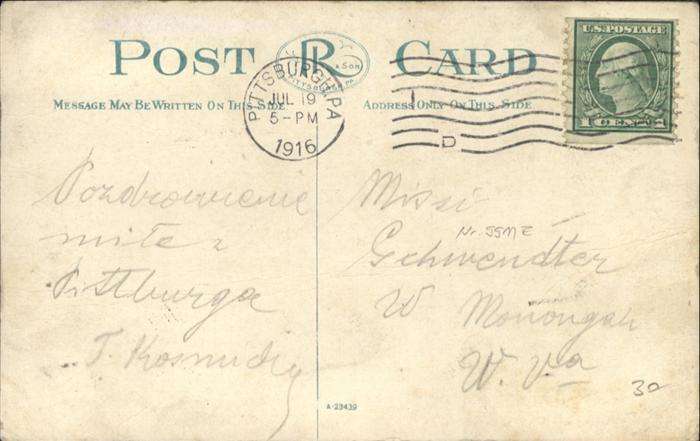 POST CARD
R
& SON
MESSAGE MAY BE WRITTEN ON THIS SIDE
ADDRESS ONLY ON THIS SIDE
PITTSBURGH, PA
JUL 19
5-PM
1916
D
U.S. POSTAGE
1 CENT 1
Pozdrowienie
miłe z
Pittburga
Missi
Gehwendter
W Monongah
W. Va
30
A-23439